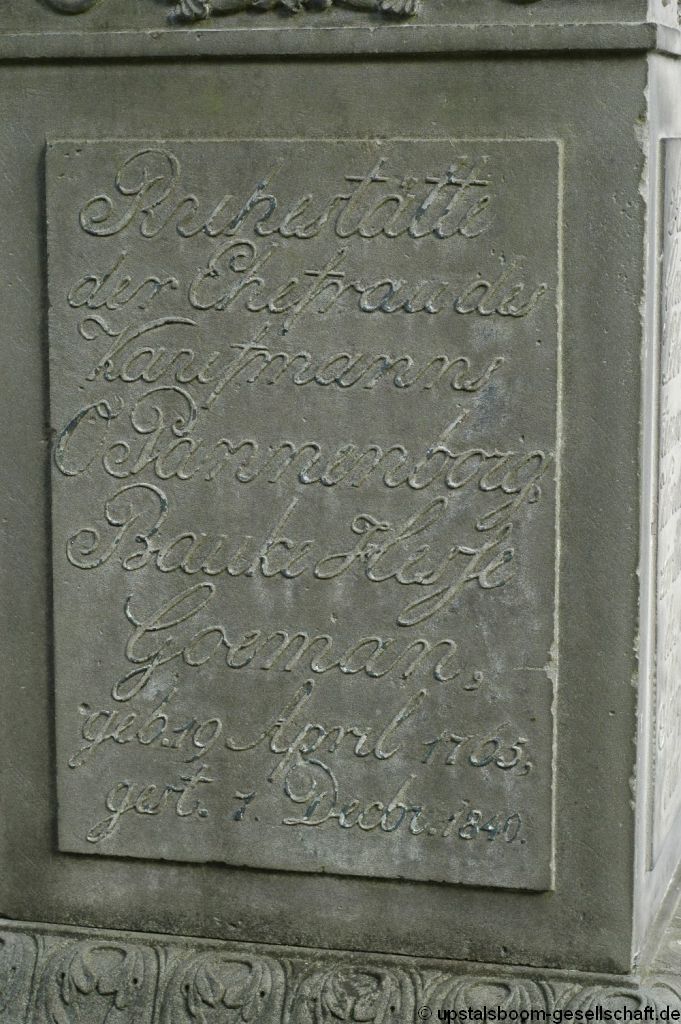 Ruhestätte
der Ehefrau des
Kaufmanns
O Pannenborg,
Bauke Hesse
Goeman,
geb. 19 April 1765,
gest. 1. Decbr. 1840.
© upstalsboom-gesellschaft.de